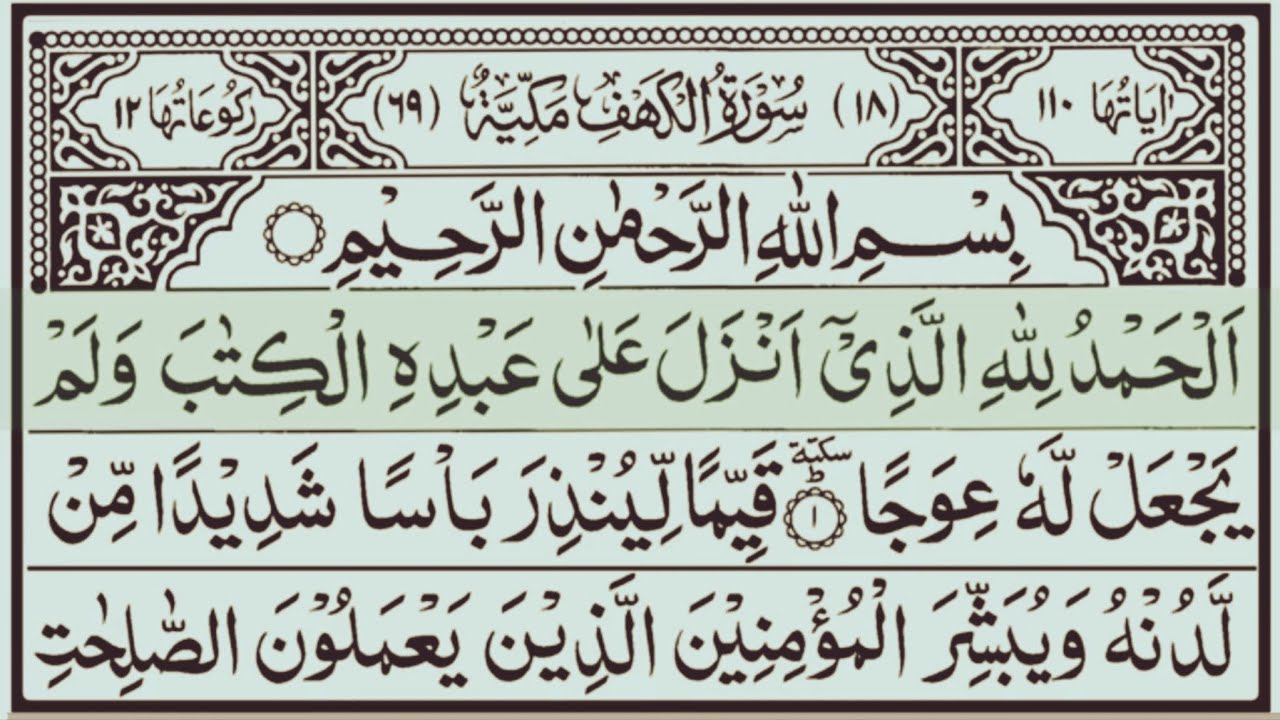 اٰيَاتُهَا ١١٠ (١٨) سُوْرَةُ الْكَهْفِ مَكِّيَّةٌ (٦٩) رُكُوْعَاتُهَا ١٢
بِسْمِ اللّٰهِ الرَّحْمٰنِ الرَّحِيْمِ
اَلْحَمْدُ لِلّٰهِ الَّذِىْۤ اَنْزَلَ عَلٰى عَبْدِهِ الْكِتٰبَ وَلَمْ
يَجْعَلْ لَّهٗ عِوَجًا ؕ سكتة ١ قَيِّمًا لِّيُنْذِرَ بَاْسًا شَدِيْدًا مِّنْ
لَّدُنْهُ وَيُبَشِّرَ الْمُؤْمِنِيْنَ الَّذِيْنَ يَعْمَلُوْنَ الصّٰلِحٰتِ